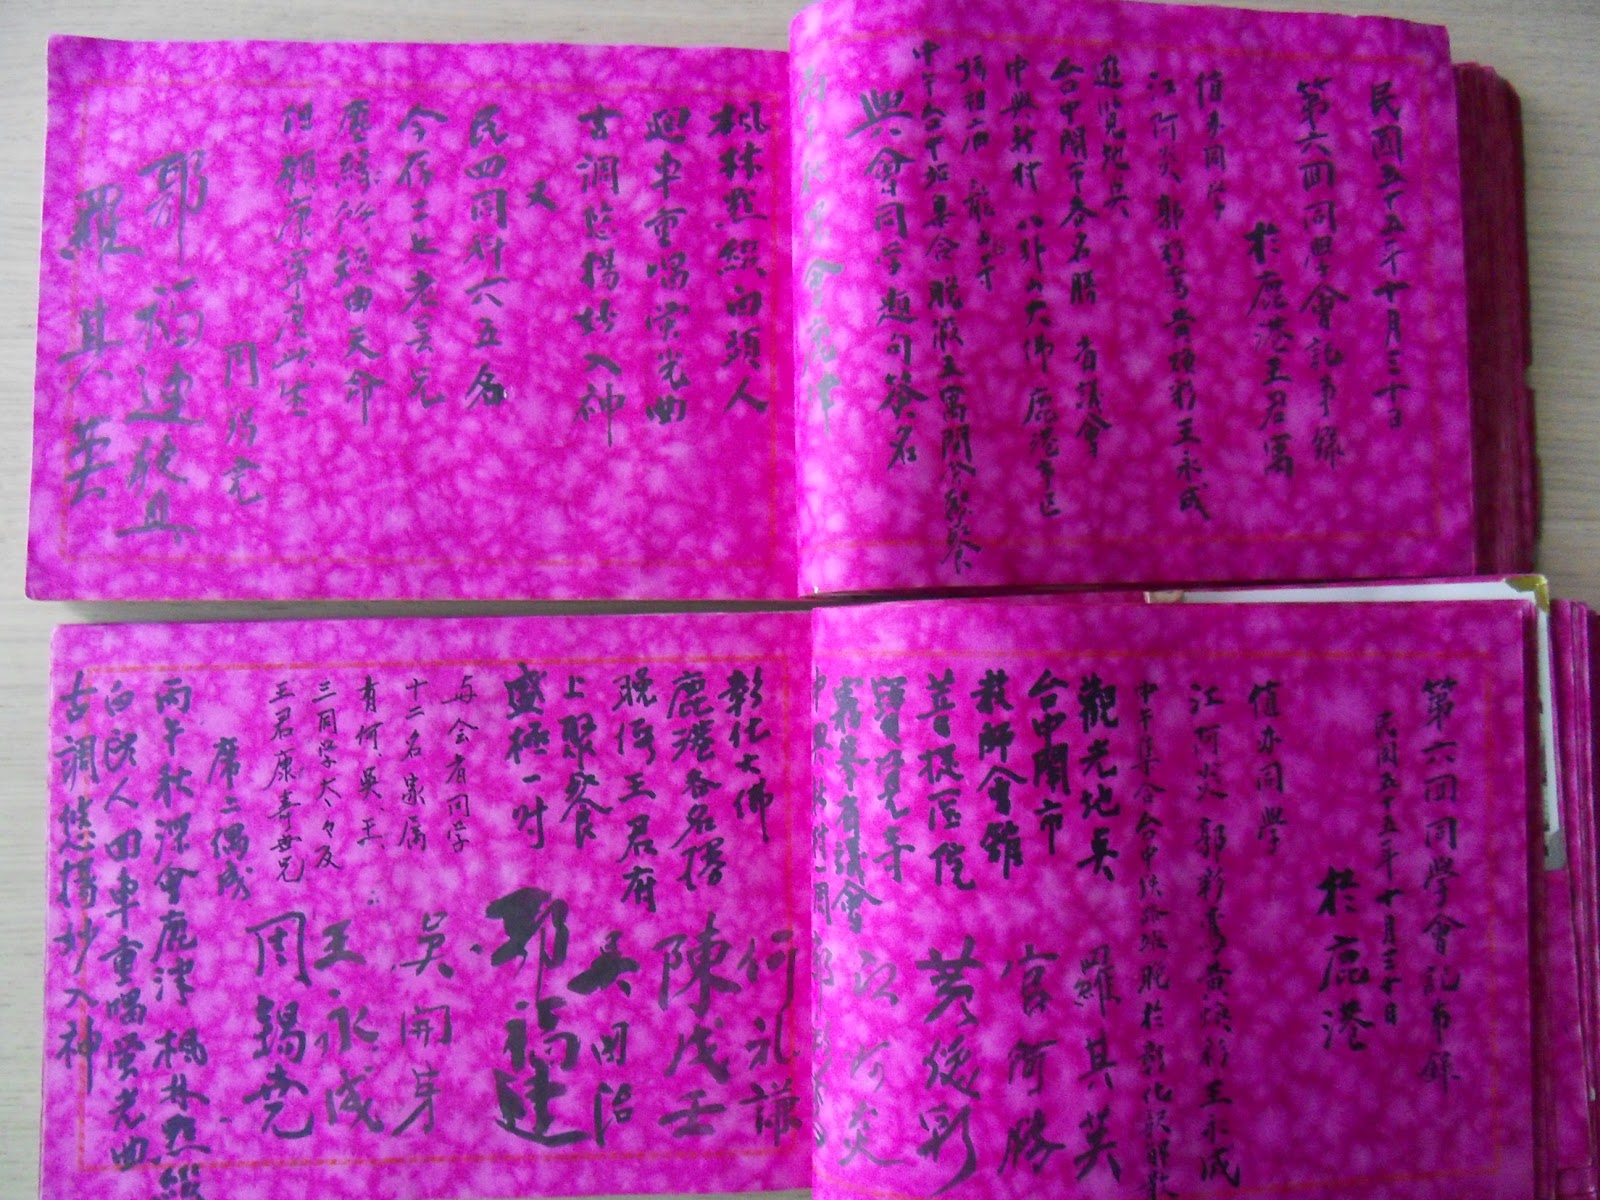 民國五十五年十月三十日
第六回同學會記事錄
於鹿港王君寓
值東同學
江阿炎 郭彩鳶 黃煥彩 王永成
遊覽地點
台中闊市各名勝 省議會
中興新村 八卦山大佛 鹿港市區
龍山寺
中午台中 集合 晚假王寓開
與會同學題句簽名
會鹿津
楓林點綴白頭人
迴車重唱螢光曲
古調悠揚妙入神
又
民四同科六五名
今存三七老昆兄
塵緣修短由天命
但願康寧度此生
周錫堯
郭福建敬具
羅其英
第六回同學會記事錄
民國五十五年十月三十日
於鹿港
值東同學
江阿炎 郭彩鳶 黃煥彩 王永成
中午集合台中 晚於彰化
觀光地點
台中闊市
教師會館
菩提医院
寶覺寺
霧峯省議會
中興新村
彰化大佛
鹿港各名勝
晚假王君府
上聚餐
盛極一时
与会者同学
十二名家属
有何、吳、王、
三同学太々及
王君康壽世兄
羅其英
官阿勝
黃煥彩
江阿炎
何礼謙
陳戊壬
吳田治
郭福建
吳開芽
王永成
周錫堯
席二偶成
丙午秋深會鹿津 楓林點綴
白頭人 回車重唱螢光曲
古調悠揚妙入神